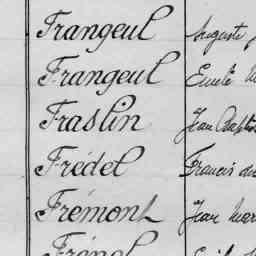 Frangeul Auguste
Frangeul Emile
Fraslin Jean Baptis
Frédel Francis
Frémont Jean Mar